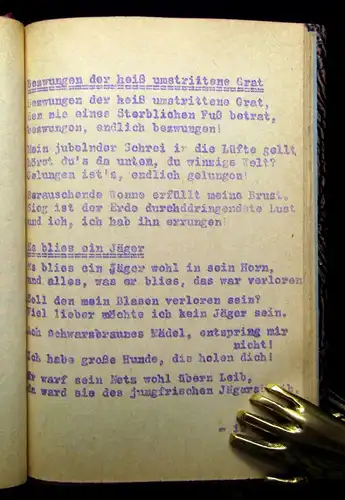 Bezwungen der heiß umstrittene Grat
Bezwungen der heiß umstrittene Grat,
Den nie eines Sterblichen Fuß betrat,
bezwungen, endlich bezwungen!
Mein jubelnder Schrei in die Lüfte gellt
hörst du's da unten, du winzige Welt?
Gelungen ist's, endlich gelungen!
Berauschende Wonne erfüllt meine Brust.
Sieg ist der Erde durchddringendste Lust
und ich, ich hab ihn errungen!
Es blies ein Jäger
Es blies ein Jäger wohl in sein Horn,
und alles, was er blies, das war verloren
Soll den mein Blasen verloren sein?
Viel lieber möchte ich kein Jäger sein.
Ach Schwarzbraunes Mädel, entspring mir
nicht!
Ich habe große Hunde, die holen dich!
Er warf sein Netz wohl übern Leib,
da ward sie des jungfrischen